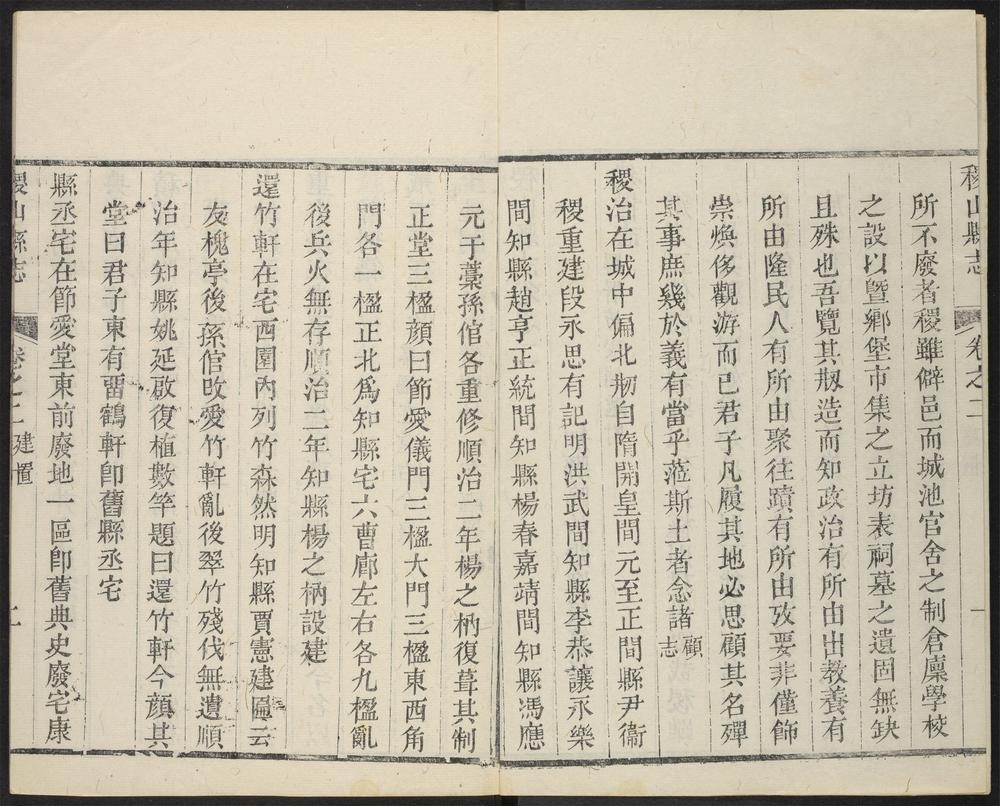 稷山縣志 卷之二 一
所不廢者稷雖僻邑而城池官舍之制倉廩學校
之設以曁鄉堡市集之立坊表祠墓之遺固無缺
且殊也吾覽其剏造而知政治有所由出教養有
所由隆民人有所由聚往蹟有所由攷要非僅飾
崇煥侈觀游而已君子凡履其地必思顧其名殫
其事庶幾於義有當乎蒞斯土者念諸顧志
稷治在城中偏北剏自隋開皇間元至正間縣尹衞
稷重建段永思有記明洪武間知縣李恭讓永樂
間知縣趙亨正統間知縣楊春嘉靖間知縣馮應
元于藁孫倌各重修順治二年楊之柄復葺其制
正堂三楹顔曰節愛儀門三楹大門三楹東西角
門各一楹正北爲知縣宅六曹廊左右各九楹亂
後兵火無存順治二年知縣楊之柄設建
還竹軒在宅西園內列竹森然明知縣賈憲建匾云
友槐亭後孫倌改愛竹軒亂後翠竹殘伐無遺順
治年知縣姚延啟復植數竿題曰還竹軒今顔其
堂曰君子東有畱鶴軒卽舊縣丞宅
縣丞宅在節愛堂東前廢地一區卽舊典史廢宅康
稷山縣志 卷之二 建置 二